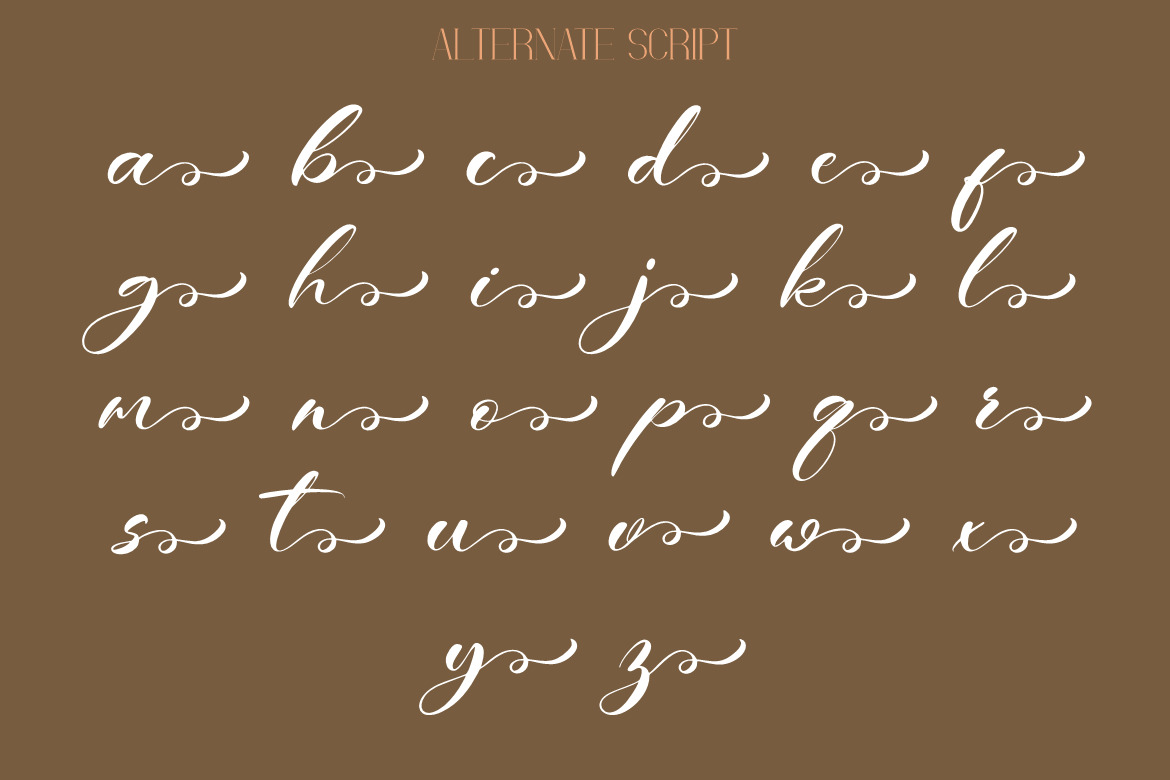 ALTERNATE SCRIPT
a b c d e f
g h i j k l
m n o p q r
s t u v w x
y z